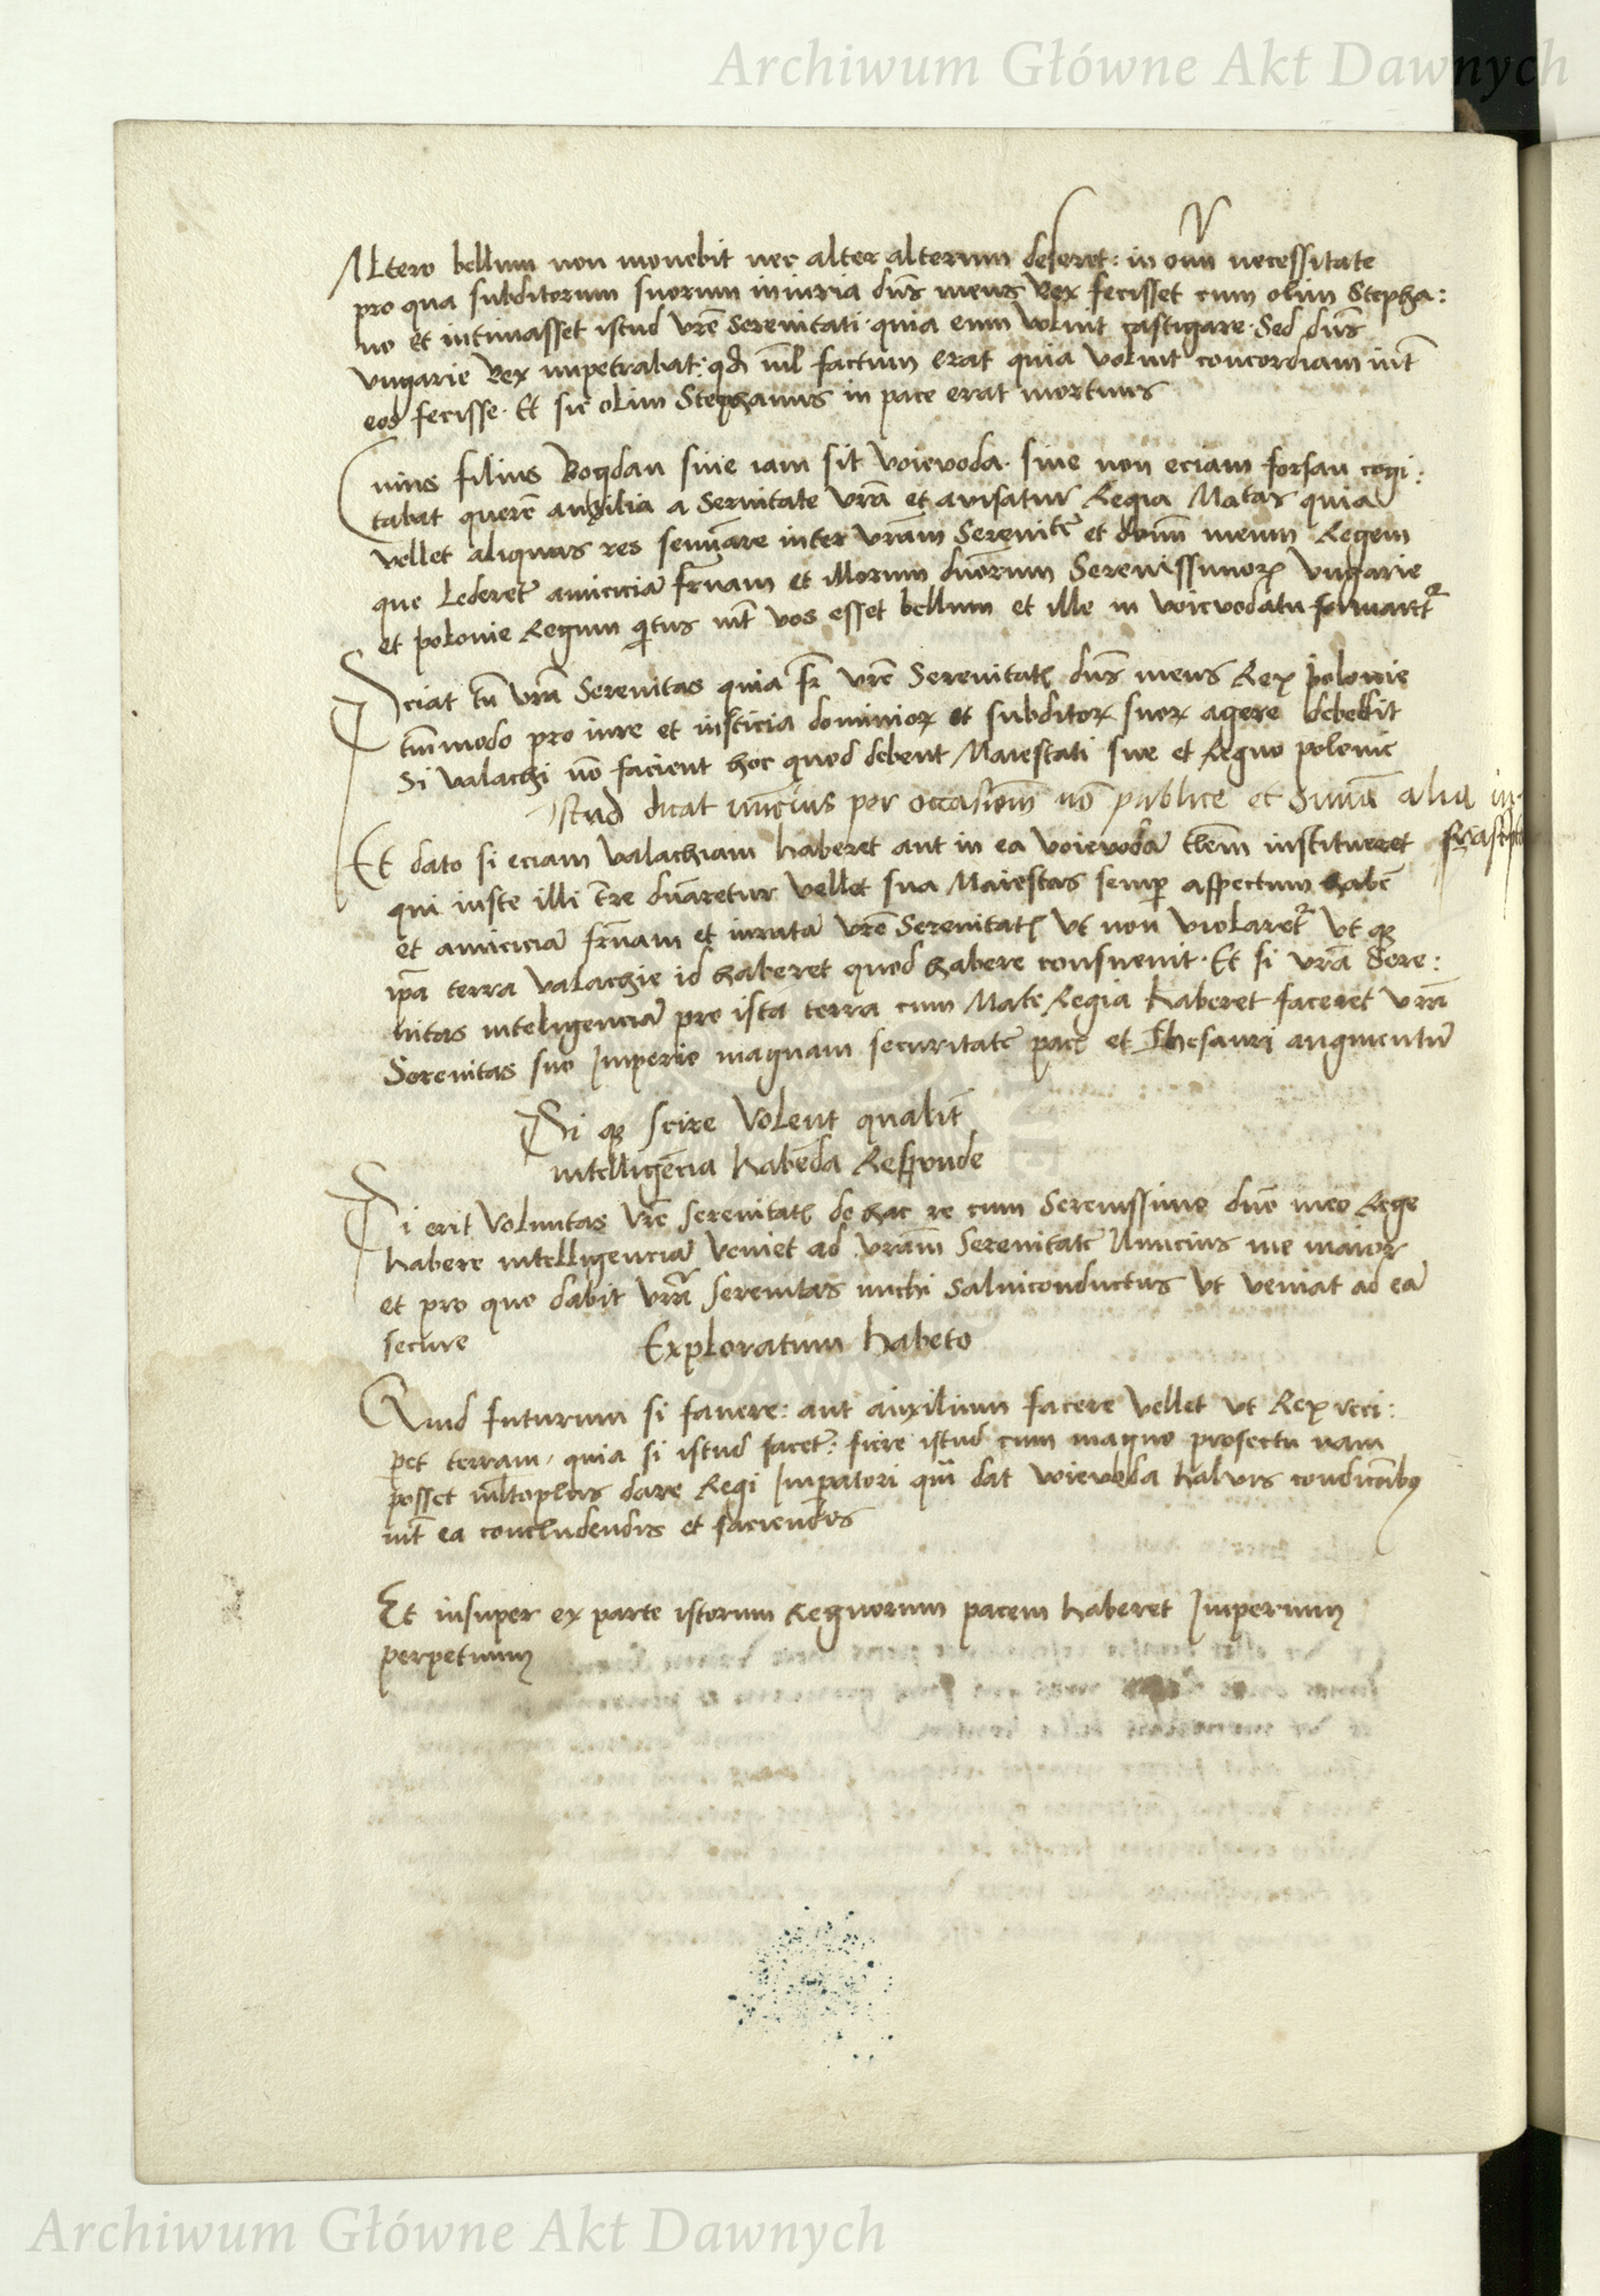 Archiwum Główne Akt Dawnych
Altero bellum non mouebit nec alter alterum deseret: in omni necessitate
pro qua subditorum suorum iniuria dn̄s meus Rex fecisset cum olim Stepha:
no et intimasset istud vrē Serenitati quia eum voluit castigare. Sed dn̄s
vngarie Rex impetrabat: qd nīl factum erat quia voluit concordiam int̄
eos fecisse. Et sic olim Stephanus in pace erat mortuus
Cuius filius Bogdan siue iam sit voievoda siue non eciam forsan cogi:
tabat querē auxilia a Sernitate vrā et avisatur Regia Mātas quia
vellet aliquas res semīare inter vrām Serenitē et dnm̄ meum Regem
que lederet̄ amiciciā frn̄am et illorum duorum Serenissimoꝝ vngarie
et polonie Regum qt̄us int̄ vos esset bellum et ille in voievodatu formaret̄
Sciat tn̄ vrā Serenitas quia fr̄ vrē Serenitatꝭ dn̄s meus Rex polonie
tm̄modo pro iure et iusticia dominioꝝ et subditoꝝ suoꝝ agere debebit
Si valachi nō facient hoc quod debent Maiestati sue et Regno polonie
Istud dicat nūcius per occasionē nō publice et alia
Et dato si eciam valachiam haberet aut in ea voievodā institueret
qui iuste illi tr̄e dn̄aretur vellet sua Maiestas semꝑ aspectum habē
et amiciciā frn̄am et iuratā vrē Serenitatꝭ vt non violaret̄ vt qꝫ
ip̄a terra valachie id haberet quod habere consueuit. Et si vrā Sere:
nitas inteligenciā pro ista terra cum Mate Regia haberet faceret vrā
Serenitas suo Imperio magnam securitatē pacē et thesauri augmentū
Si qꝫ scire volent qualit̄
intelligēcia habēda Responde
Si erit voluntas vrē serenitatꝭ de hac re cum Serenissimo dn̄o meo Rege
habere intelligenciā veniet ad vrām Serenitatē Nuncius me maior
et pro quo dabit vrā serenitas michi saluiconductus vt veniat ad eā
secure
Exploratum habeto
Quid futurum si fauere: aut auxilium facere vellet vt Rex reci:
pet terram, quia si istud facet̄: fieret istud cum magno profectu nam
posset ml̄toplus dare Regi Impatori quā dat woievoda condicōibꝫ
int̄ ea concludendis et faciendis
Et insuper ex parte istorum Regnorum pacem haberet Imperium
perpetuum
Archiwum Główne Akt Dawnych